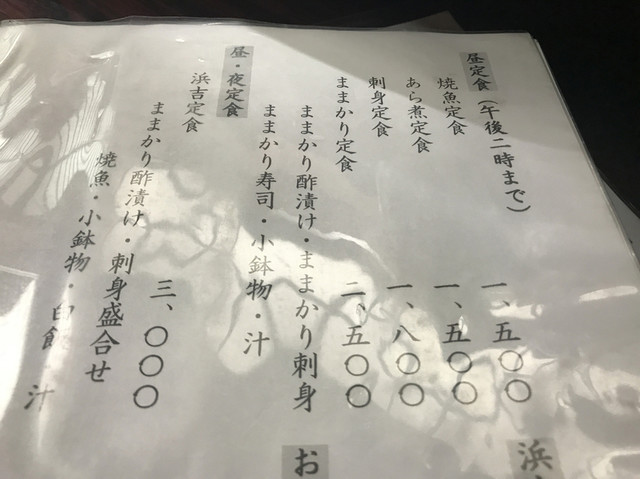 昼定食(午後二時まで)
焼魚定食 一、五〇〇
あら煮定食 一、五〇〇
刺身定食 一、八〇〇
ままかり定食 二、五〇〇
ままかり酢漬け・ままかり刺身
ままかり寿司・小鉢物・汁
昼・夜定食
浜吉定食 三、〇〇〇
ままかり酢漬け・刺身盛合せ
焼魚・小鉢物・白飯・汁
浜
お